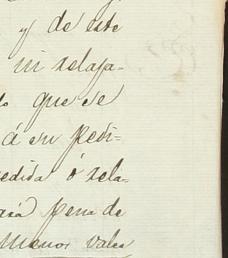 y de este
ni relaja-
que se
á su pedi-
edida ó rela-
ará pena de
menor vale